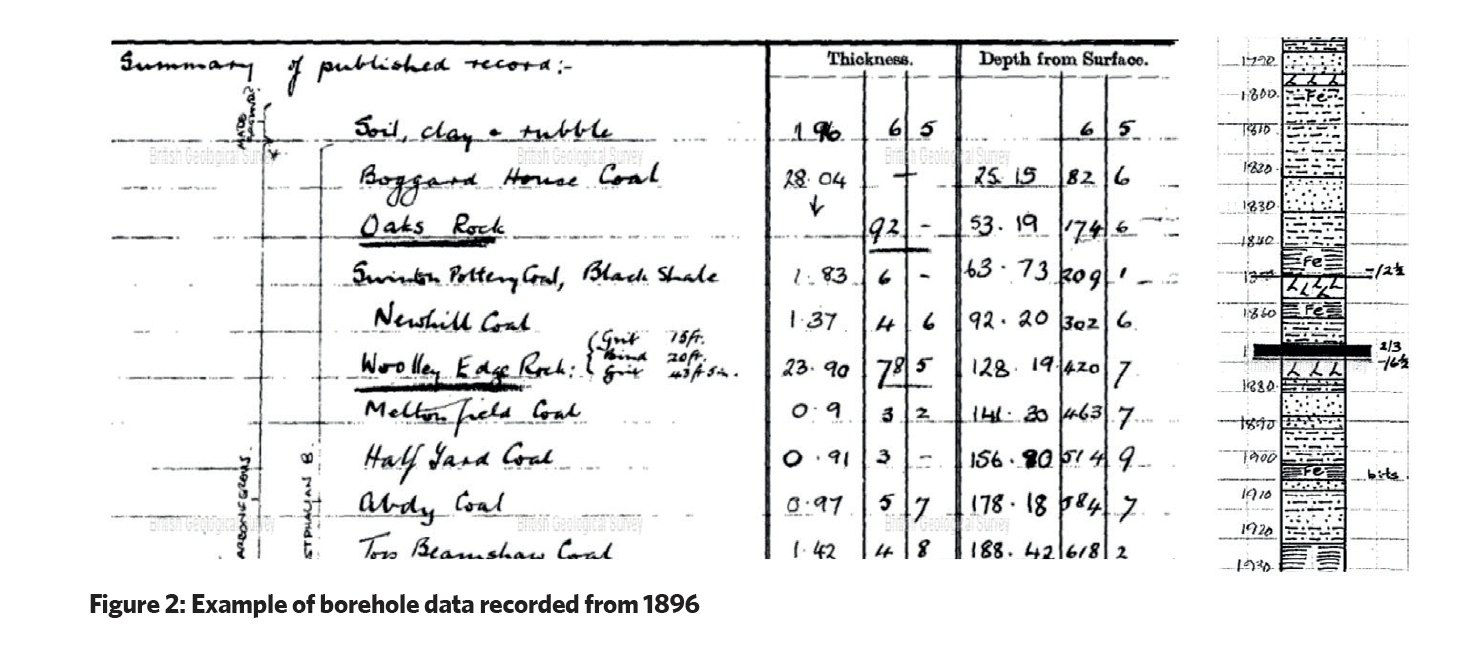 Summary of published record:-
Thickness. Depth from Surface.
MADE GROUND?
Soil, clay & rubble 1 96 6 5 6 5
British Geological Survey British Geological Survey British Geological Survey
Boggard House Coal 28.04 — 25.15 82 6
Oaks Rock 92 - 53.19 174 6
Swinton Pottery Coal, Black Shale 1.83 6 - 63.73 209 1
Newhill Coal 1.37 4 6 92.20 302 6
Woolley Edge Rock: 23.90 78 5 128.19 420 7
Grit 15ft.
Bind 20ft.
Grit 43ft 5in.
Meltonfield Coal 0.9 3 2 141.30 463 7
Half Yard Coal 0.91 3 - 156.90 514 9
Abdy Coal 0.97 5 7 178.18 584 7
British Geological Survey British Geological Survey British Geological Survey
Top Beamshaw Coal 1.42 4 8 188.42 618 2
ARBONIFEROUS
STPHALIAN B.
1790
1800 Fe
1810
1820
1830
1840
Fe
-/2½
1860 Fe
2/3
-/6½
1880
1890
1900
Fe bits
1910
1920
1930
Figure 2: Example of borehole data recorded from 1896